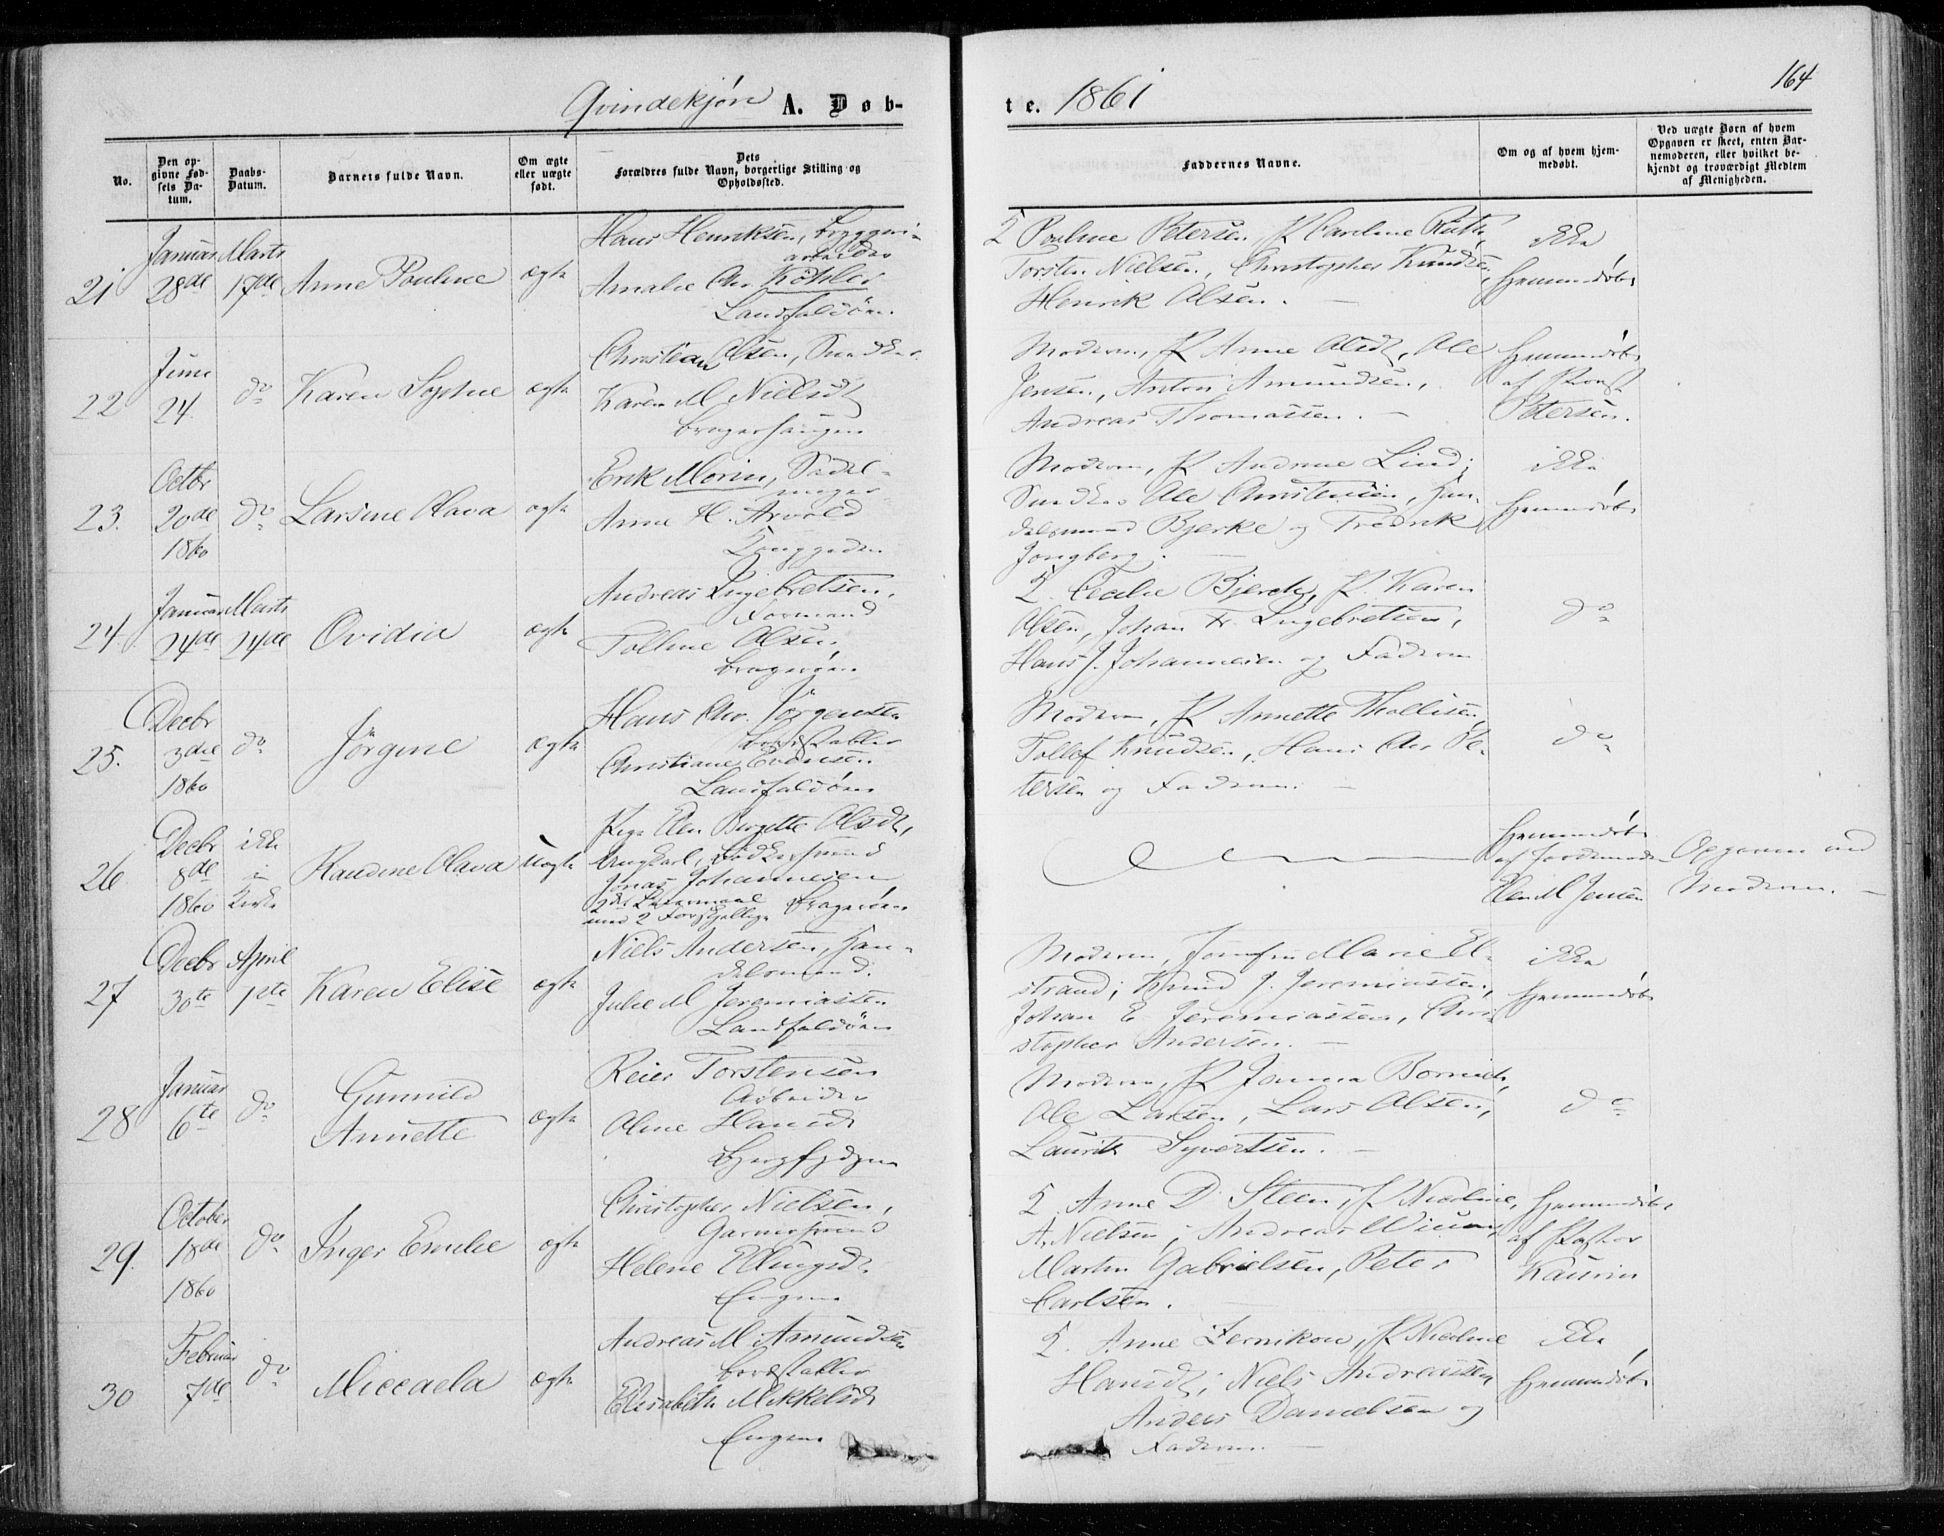 Qvindekjøn A. Døb-
te. 1861
164
No.
Den op-
givne Fød-
sels Da-
tum.
Daabs-
Datum.
Barnets fulde Navn.
Om ægte
eller uægte
født.
Dets
Forældres fulde Navn, borgerlige Stilling og
Opholdssted.
Faddernes Navne.
Om og af hvem hjem-
medøbt.
Ved uægte Børn af hvem
Opgaven er skeet, enten Bar-
nemoderen, eller hvilket be-
kjendt og troværdigt Medlem
af Menigheden.
21
Januar
28de
Marts
17de
Anne Pouline
ægte
Hans Henriksen, Bryggeri-
arbeider
Amalie Chr. Köhler
Landfaldøen
Pouline Petersen, P Caroline
Torsten Nielsen, Christopher Knudsen,
Henrik Olsen. —
ikke
hjemmedøbt
22
Juni
24.
do
Karen Sophie
ægte
Christian Olsen, Snedker
Karen M Nielsdt
Bragerhaugen
Moderen, P Anne Olsdt, Ole
Jensen, Anton Amundsen,
Andreas Thomassen. —
hjemmedøbt
af Provst
Petersen.
23.
Octbr
20de
1860
do
Larsine Olava
ægte
Erik Morin, Sadel-
mager
Anne H. Arvold
Konggaden
Moderen, P Andrine Lind;
Snedker Ole Christensen, Han-
delsmand Bjerke og Fredrik
Jongberg.
ikke
hjemmedøbt
24.
Januar
24de
Marts
24de
Ovidia
ægte
Andreas Ingebretsen,
Formand
Tolline Olsen
Bragerøen
Cecilie Bjerck, P. Karen
Olsen, Johan Fr. Ingebretsen,
Hans J. Johannesen og Faderen
do
25.
Decbr
3die
1860
do
Jörgine
ægte
Hans Chr. Jörgensen
Bordstabler
Christiane Evensen
Landfaldøen
Moderen, P Annette Thollisen,
Tollef Knudsen, Hans Chr Pe-
tersen og Faderen. —
do
26
Decbr
8de
1860
ikke
i
Kirke
Randine Olava
uægte
Pige Elen Birgitte Olsdt,
Ungkarl, Bødkersvend
Jonas Johannesen
2det Leiermaal
med 2 Forskjellige
Bragerøen
hjemmedøbt
af Jordemoder
Elen M Jensen
Opgaven ved
Moderen. —
27
Decbr
30te
April
1ste
Karen Elise
ægte
Niels Andersen, Han-
delsmand.
Julie M Jeremiassen
Landfaldøen
Moderen, Jomfru Marie El-
strand; Knud J. Jeremiassen,
Johan E Jeremiassen, Chri-
stopher Andersen. —
ikke
hjemmedøbt
28
Januar
6te
do
Gunnild
Annette
ægte
Reier Torstensen
Arbeider
Oline Hansdt
Moderen, P Janna
Ole Larsen, Lars Olsen,
Laurits Syvertsen. —
do
29.
October
18de
1860
do
Inger Emilie
ægte
Christopher Nielsen,
Garversvend
Helene Ellingsdt.
Engene
Anne D. Steen, P Nicoline
A. Nielsen; Andreas
Martin Gabrielsen, Peter
Carlsen.
hjemmedøbt
af Pastor
Kaurin
30
Februar
7de
do
Miccaela
ægte
Andreas M Amundsen
Bordstabler
Elisabeth Mikkelsdt
Engene
Anne Zernikow, P Nicoline
Hansdt; Niels Andreassen,
Anders Danielsen og
Faderen. —
ikke
hjemmedøbt